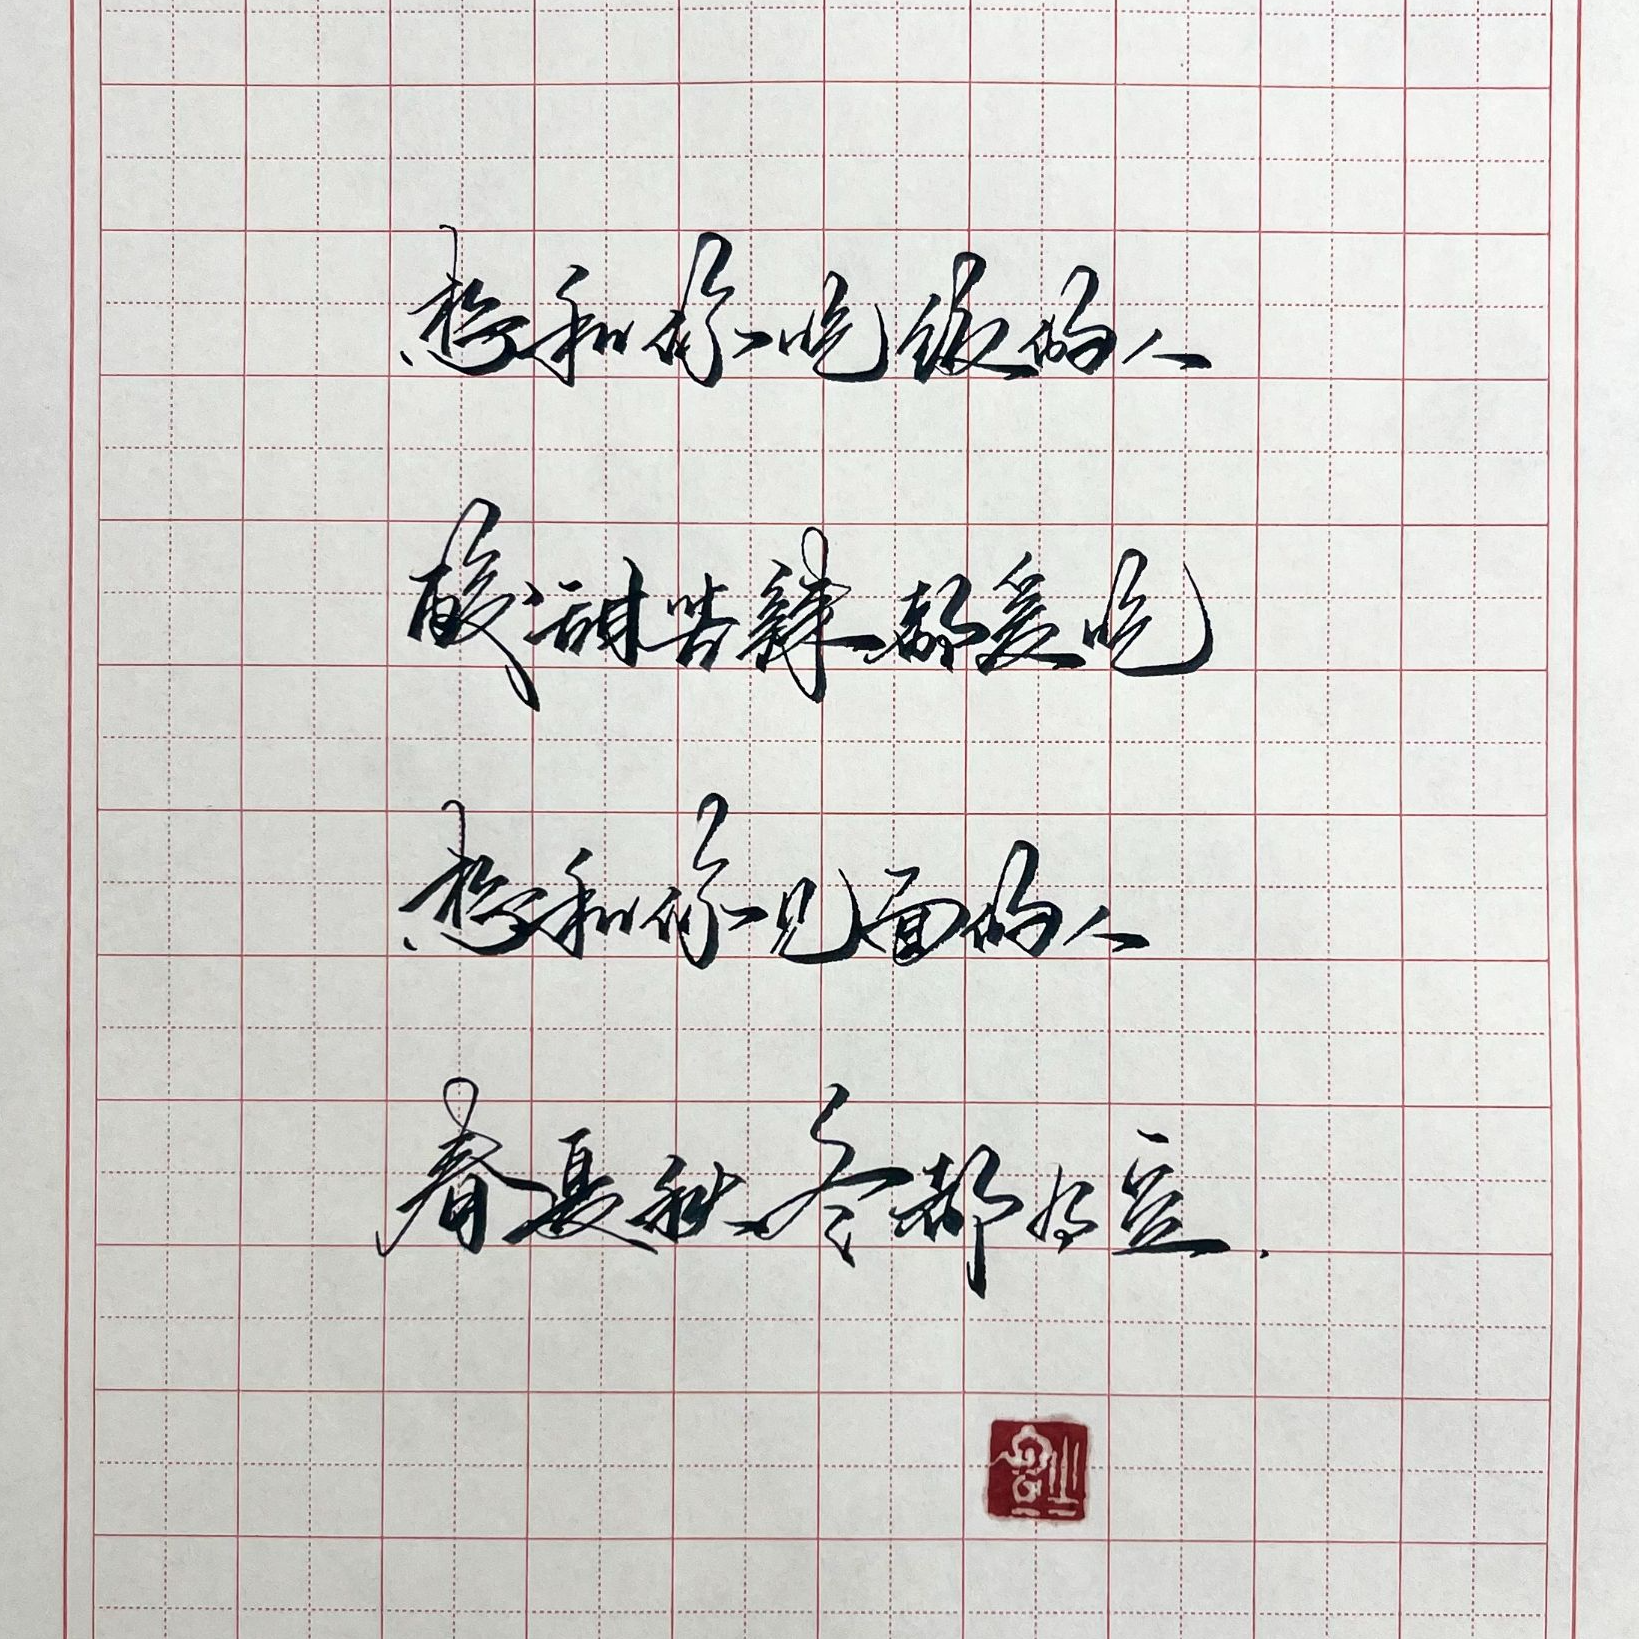 想和你吃饭的人
酸甜苦辣都爱吃
想和你见面的人
春夏秋冬都有空.